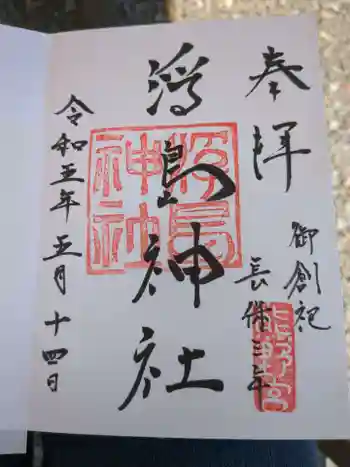 奉拝
御創祀
長備三年
浮島神社
令和五年五月十四日
浮島神社